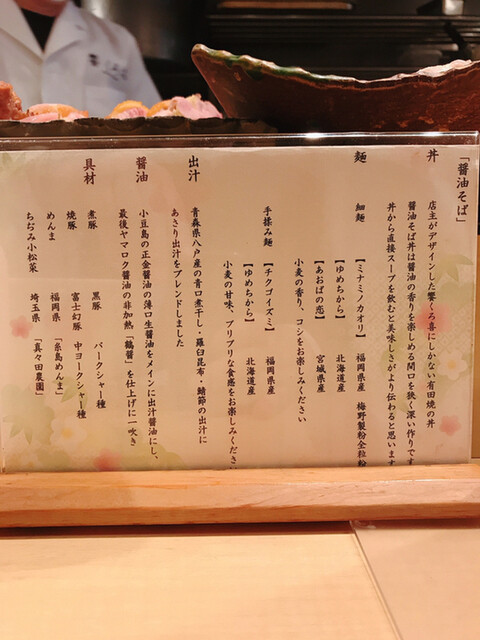 「醤油そば」
丼
店主がデザインした饗くろ喜にしかない有田焼の丼
醤油そば丼は醤油の香りを楽しめる間口を狭く深い作りです
丼から直接スープを飲むと美味しさがより伝わると思います
麺
細麺 【ミナミノカオリ】 福岡県産 梅野製粉全粒粉
【ゆめちから】 北海道産
【あおばの恋】 宮城県産
小麦の香り、コシをお楽しみください
手揉み麺 【チクゴイズミ】 福岡県産
【ゆめちから】 北海道産
小麦の甘味、プリプリな食感をお楽しみくださ
出汁
青森県八戸産の青口煮干し・羅臼昆布・鯖節の出汁に
あさり出汁をブレンドしました
醤油
小豆島の正金醤油の薄口生醤油をメインに出汁醤油にし、
最後ヤマロク醤油の非加熱「鶴醤」を仕上げに一吹き
具材
煮豚 黒豚 バークシャー種
焼豚 富士幻豚 中ヨークシャー種
めんま 福岡県 「糸島めんま」
ちぢみ小松菜 埼玉県 「真々田農園」